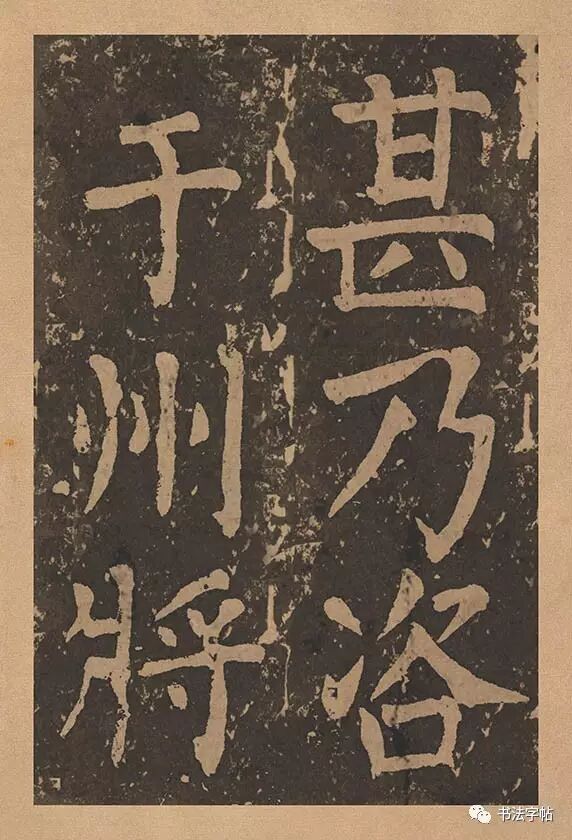 甚乃咨
于州將
书法字帖